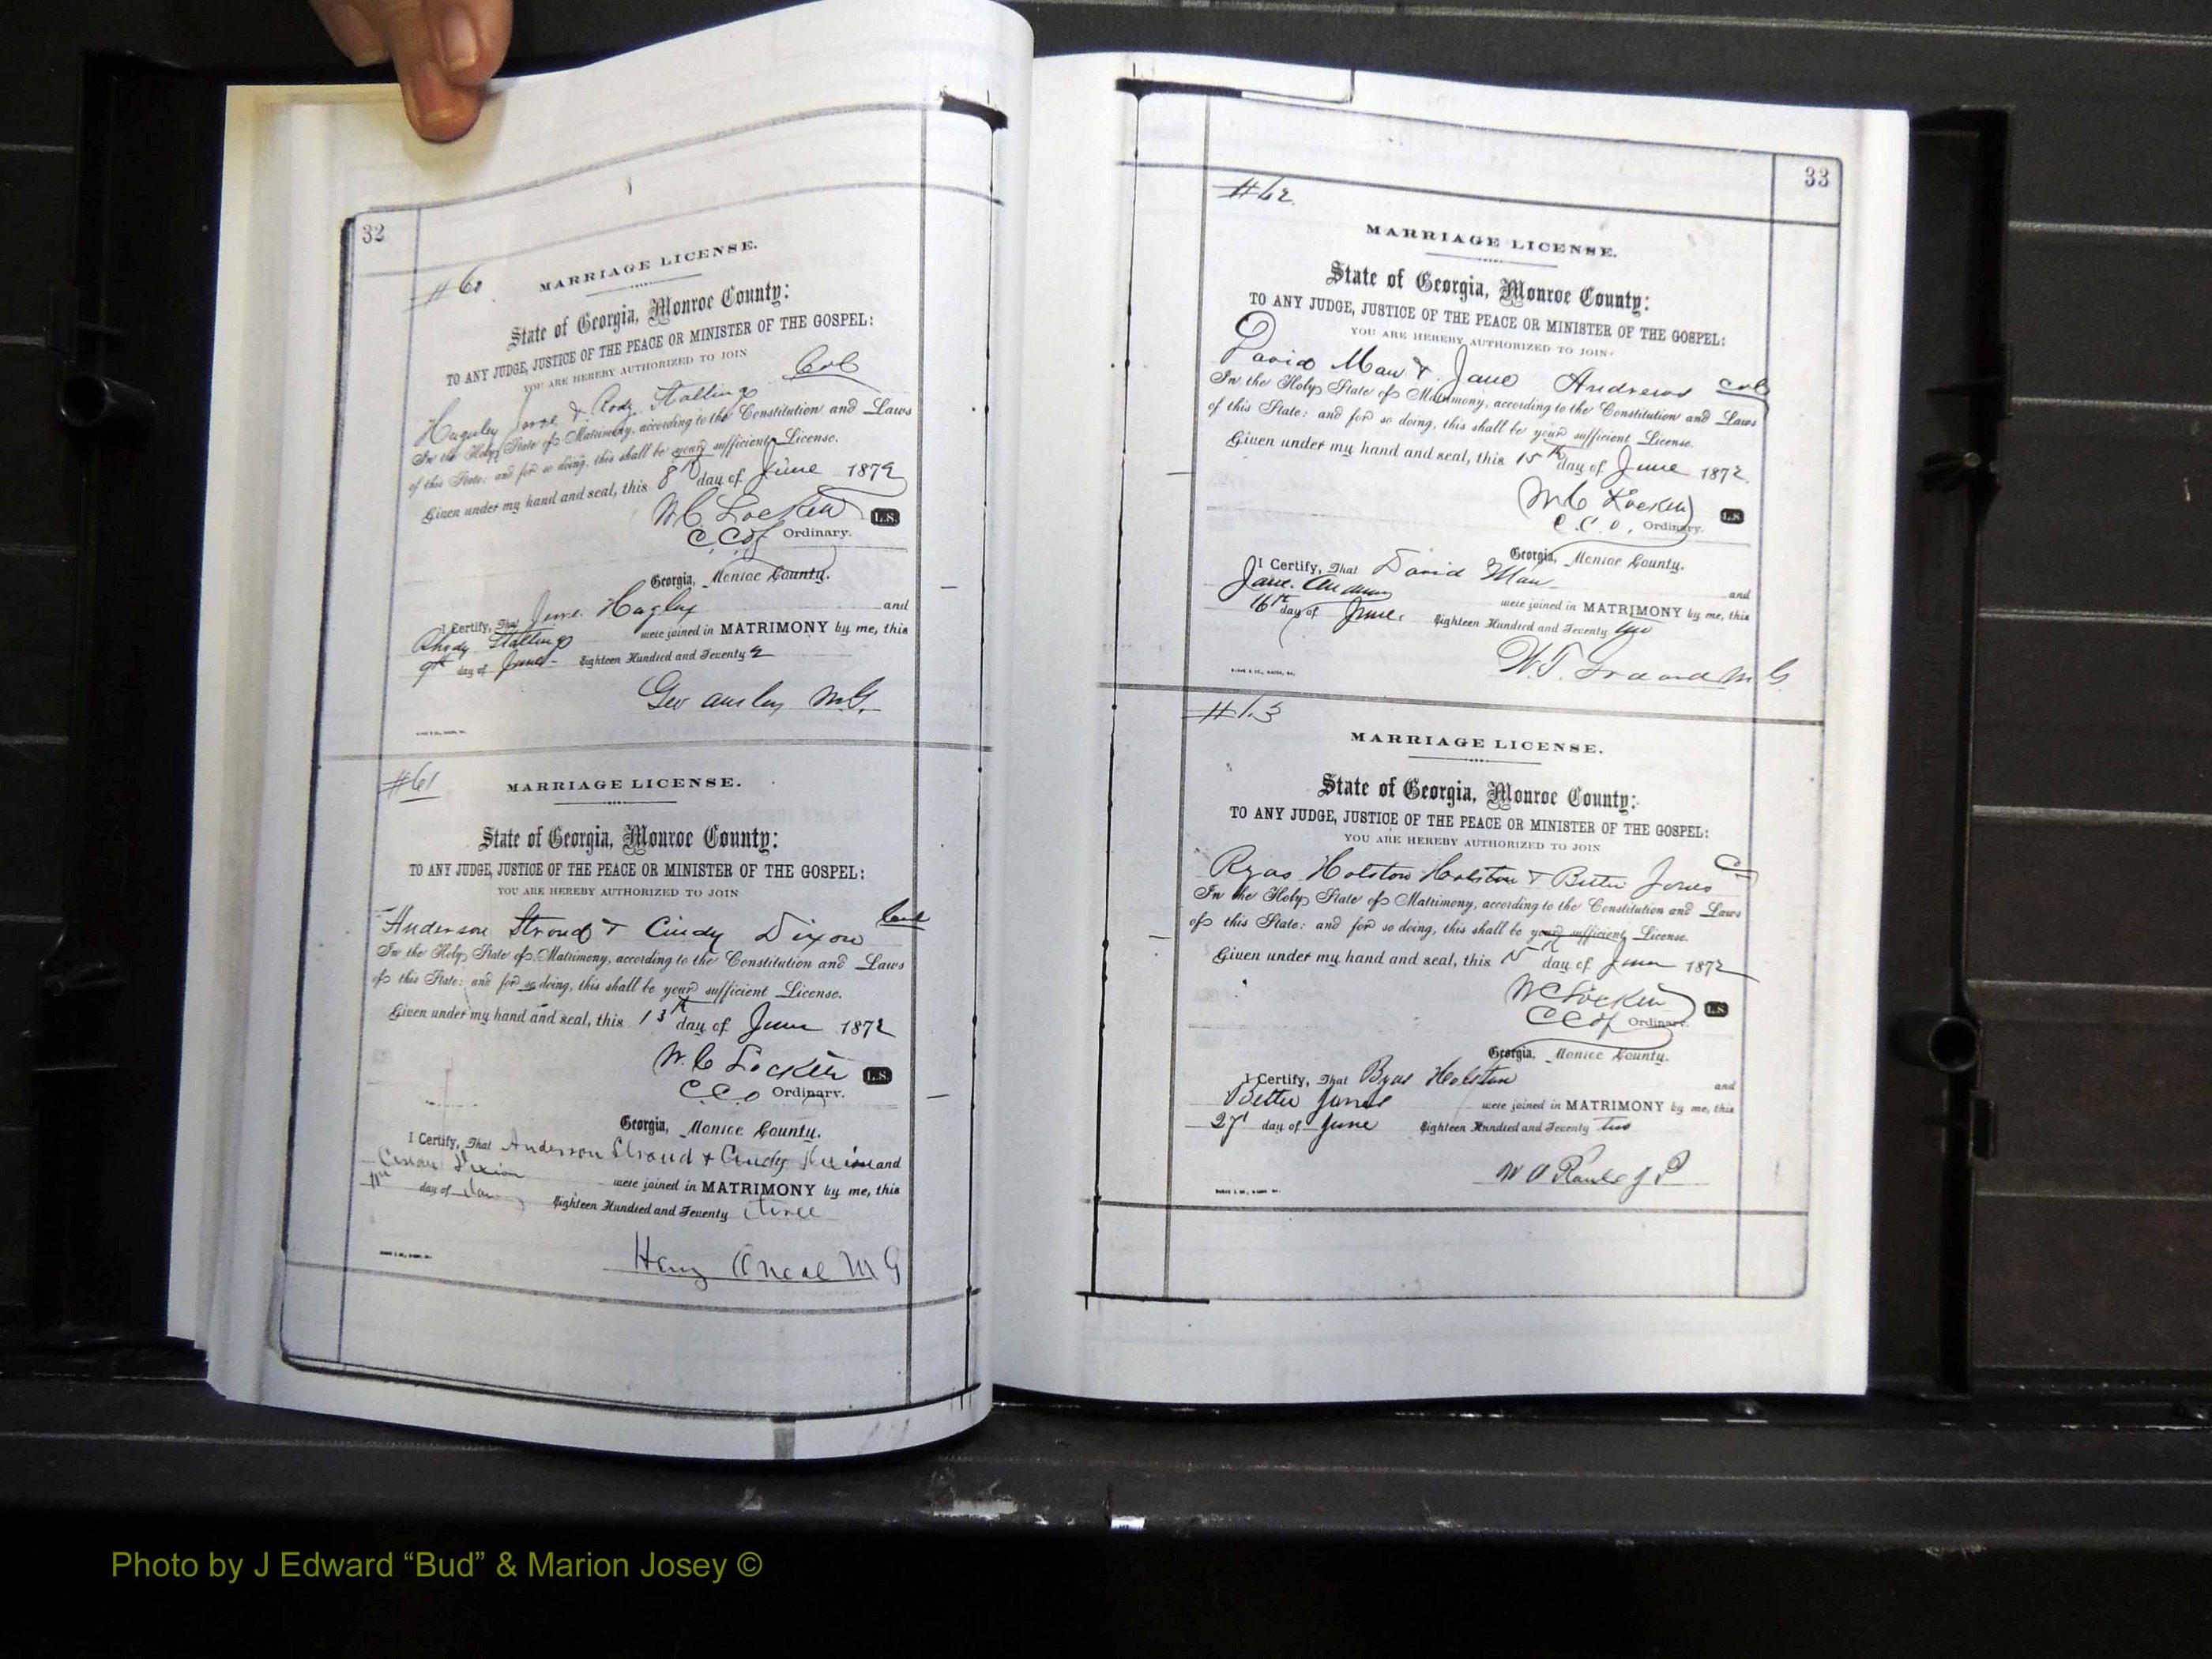 32
#60
MARRIAGE LICENSE.
State of Georgia, Monroe County:
TO ANY JUDGE, JUSTICE OF THE PEACE OR MINISTER OF THE GOSPEL:
YOU ARE HEREBY AUTHORIZED TO JOIN
Col
& Rody Stallings
In the Holy State of Matrimony, according to the Constitution and Laws
of this State: and for so doing, this shall be your sufficient License.
Given under my hand and seal, this 8th day of June 1872
W.C. Lockett L.S.
Ordinary.
Georgia, Monroe County.
I Certify, That Hagley and
Rhody Stallings were joined in MATRIMONY by me, this
9th day of June Eighteen Hundred and Seventy 2
Geo Ansley M.G.
#61
MARRIAGE LICENSE.
State of Georgia, Monroe County:
TO ANY JUDGE, JUSTICE OF THE PEACE OR MINISTER OF THE GOSPEL:
YOU ARE HEREBY AUTHORIZED TO JOIN
Anderson Stroud & Cindy Dixon
In the Holy State of Matrimony, according to the Constitution and Laws
of this State: and for so doing, this shall be your sufficient License.
Given under my hand and seal, this 13th day of June 1872
W.C. Lockett L.S.
C.C.O Ordinary.
Georgia, Monroe County.
I Certify, That Anderson Stroud & Cindy and
Dixion were joined in MATRIMONY by me, this
day of Eighteen Hundred and Seventy
Henry Oneal M G
33
#62
MARRIAGE LICENSE.
State of Georgia, Monroe County:
TO ANY JUDGE, JUSTICE OF THE PEACE OR MINISTER OF THE GOSPEL:
YOU ARE HEREBY AUTHORIZED TO JOIN
David Mau & Jane Andrews col
In the Holy State of Matrimony, according to the Constitution and Laws
of this State: and for so doing, this shall be your sufficient License.
Given under my hand and seal, this 15th day of June 1872.
W.C. Lockett L.S.
C.C.O. Ordinary.
Georgia, Monroe County.
I Certify, That David Mau and
Jane were joined in MATRIMONY by me, this
16th day of June. Eighteen Hundred and Seventy two
W.T. M G
MARRIAGE LICENSE.
State of Georgia, Monroe County:
TO ANY JUDGE, JUSTICE OF THE PEACE OR MINISTER OF THE GOSPEL:
YOU ARE HEREBY AUTHORIZED TO JOIN
Holston & Bettie Jones
In the Holy State of Matrimony, according to the Constitution and Laws
of this State: and for so doing, this shall be your sufficient License.
Given under my hand and seal, this 15 day of June 1872
W C Lockett L.S.
Ordinary.
Georgia, Monroe County.
I Certify, That Byas Holston and
Bettie Jones were joined in MATRIMONY by me, this
27 day of June Eighteen Hundred and Seventy two
J P
Photo by J Edward “Bud” & Marion Josey ©